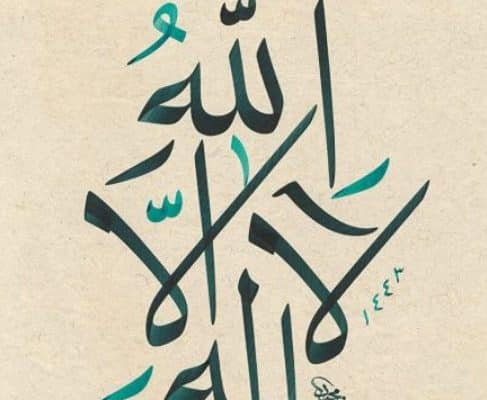 لَا إِلٰهَ إِلَّا اللّٰهُ
١٤٤٣